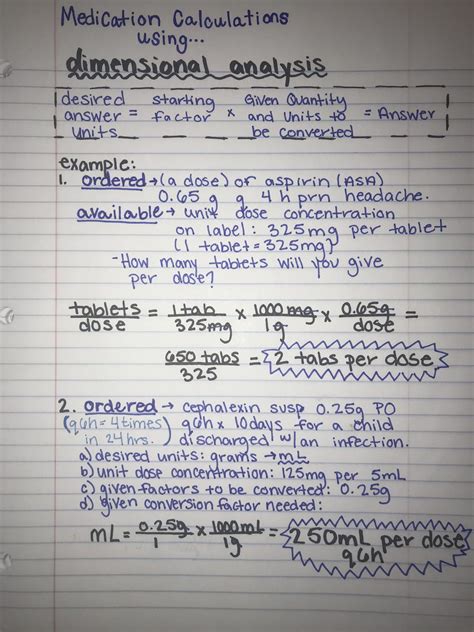 Medication Calculations
using...
dimensional analysis
desired starting Given Quantity
answer = factor x and Units to = Answer
units be converted
example:
1. ordered → (a dose) of aspirin (ASA)
0.65 g q 4 h prn headache.
available → unit dose concentration
on label: 325mg per tablet
(1 tablet = 325mg)
- How many tablets will you give
per dose?
tablets/dose = 1 tab/325mg x 1000 mg/1g x 0.65g/dose =
650 tabs/325 = 2 tabs per dose
2. ordered → cephalexin susp 0.25g PO
(q6h = 4 times q6h x 10 days for a child
in 24 hrs.) discharged w/ an infection.
a) desired units: grams → mL
b) unit dose concentration: 125mg per 5mL
c) given factors to be converted: 0.25g
d) given conversion factor needed:
mL = 0.25g/1 x 1000mL/1g = 250mL per dose
q6h